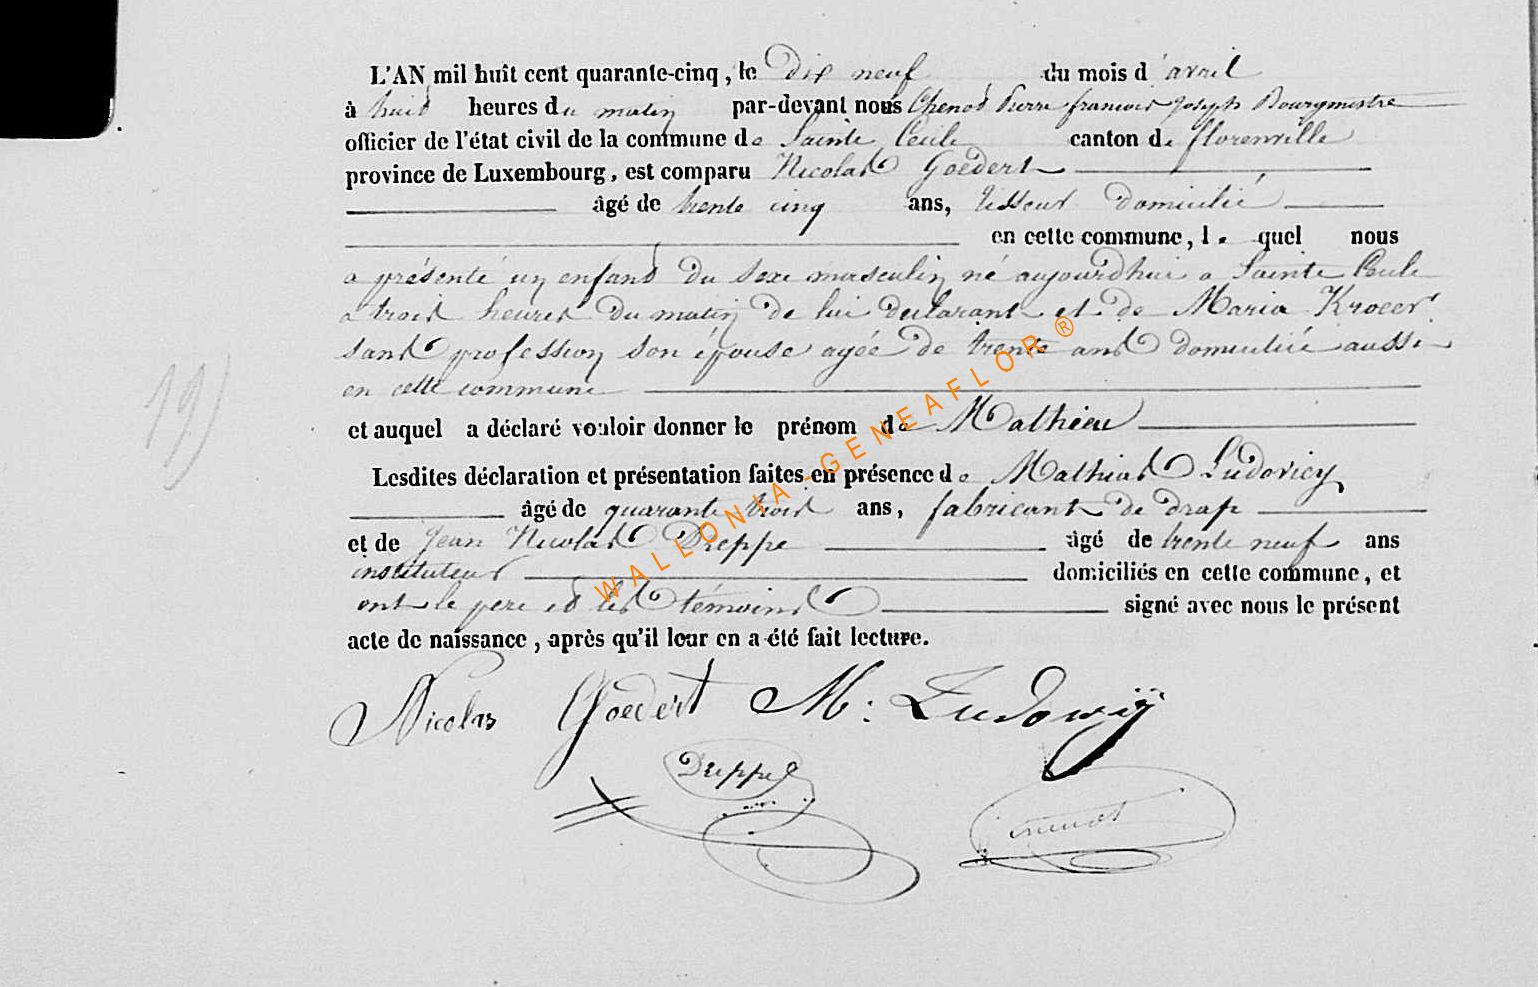 L'AN mil huit cent quarante-cinq, le Dix neuf du mois d'avril
à huit heures du matin par-devant nous Chenot Pierre francois Joseph Bourgmestre
officier de l'état civil de la commune de Sainte Cecile canton de florenville
province de Luxembourg, est comparu Nicolas Goedert
âgé de trente cinq ans, tisseur domicilié
en cette commune, le quel nous
a présenté un enfant du sexe masculin né aujourdhui a Sainte Cecile
a trois heures du matin de lui declarant et de Maria Kroeer
sans profession son épouse agée de trente ans domiciliée aussi
en cette commune
et auquel a déclaré vouloir donner le prénom de Mathieu
Lesdites déclaration et présentation faites en présence de Mathias Ludovicy
âgé de quarante trois ans, fabricant de drap
et de Jean Nicolas Dreppe âgé de trente neuf ans
instituteur domiciliés en cette commune, et
ont le pere et les témoins signé avec nous le présent
acte de naissance, après qu'il leur en a été fait lecture.
Nicolas Goedert M: Ludowiÿ
Dreppe
Chenot
19)
WALLONIA-GENEAFLOR®